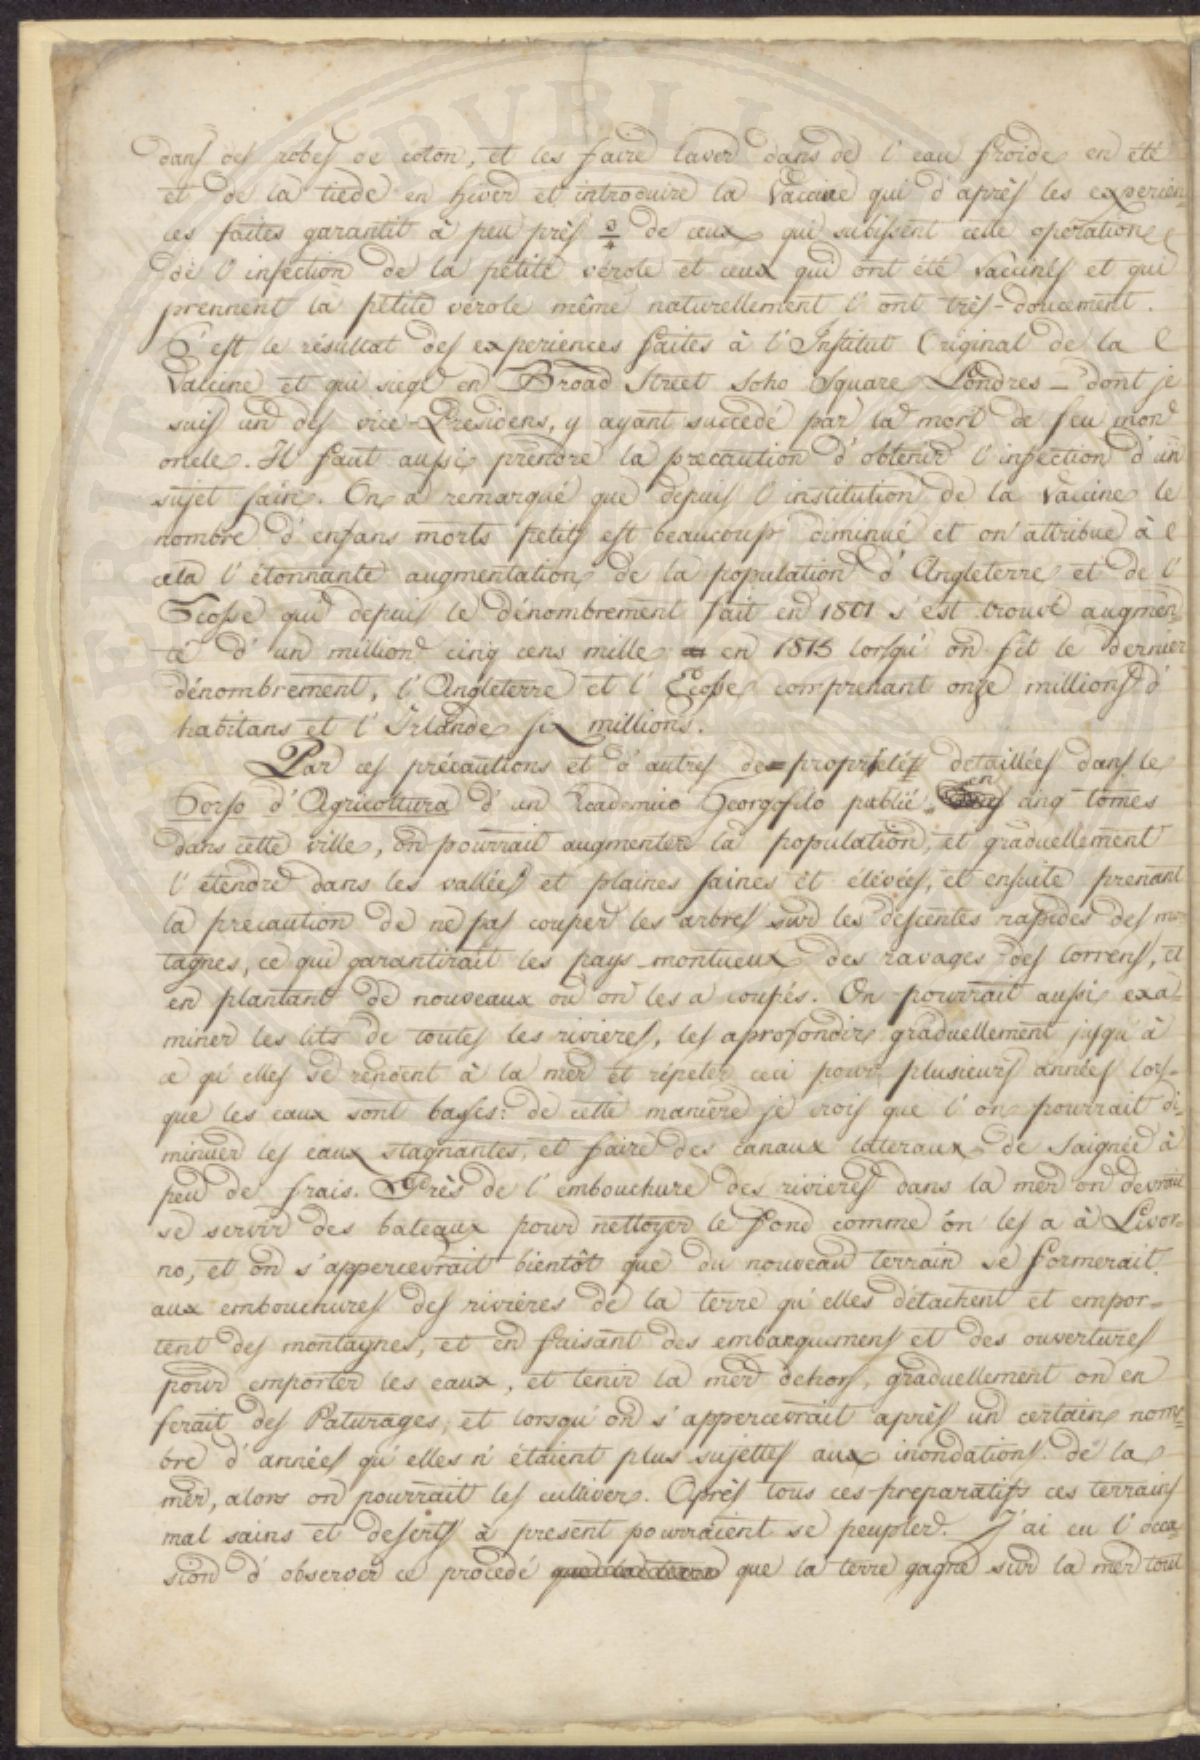 dans des robes de coton, et les faire laver dans de l'eau froide en été
et de la tiede en hiver et introduire la Vaccine qui d'après les experien-
ces faites garantit à peu près 3/4 de ceux qui subissent cette operation
de l'infection de la petite vérole et ceux qui ont été vaccinés et qui
prennent la petite vérole même naturellement l'ont très-doucement.
C'est le résultat des experiences faites à l'Institut Original de la
Vaccine et qui siege en Broad Street Soho Square Londres - dont je
suis un des vice-Presidens, y ayant succedé par la mort de feu mon
oncle. Il faut aussi prendre la precaution d'obtenir l'infection d'un
sujet sain. On a remarqué que depuis l'institution de la Vaccine le
nombre d'enfans morts petits est beaucoup diminué et on attribue à
cela l'étonnante augmentation de la population d'Angleterre et de l'
Ecosse qui depuis le dénombrement fait en 1801 s'est trouvé augmen-
té d'un million cinq cens mille en 1813 lorsqu'on fit le dernier
dénombrement, l'Angleterre et l'Ecosse comprenant onze millions d'
habitans et l'Irlande six millions.
Par ces précautions et d'autres de propriétés detaillées dans le
Corso d'Agricoltura d'un Academico Georgofilo publié en cinq tomes
dans cette ville, on pourrait augmenter la population, et graduellement
l'étendre dans les vallées et plaines saines et élevées, et ensuite prenant
la precaution de ne pas couper les arbres sur les descentes rapides des mon
tagnes, ce qui garantirait les pays-montueux des ravages des torrens, et
en plantant de nouveaux où on les a coupés. On pourrait aussi exa-
miner les lits de toutes les rivieres, les aprofondir graduellement jusqu'à
ce qu'elles se rendent à la mer et répeter ceci pour plusieurs années lors-
que les eaux sont basses: de cette manière je crois que l'on pourrait di-
minuer les eaux stagnantes, et faire des canaux lateraux de saignée à
peu de frais. Près de l'embouchure des rivieres dans la mer on devrait
se servir des bateaux pour nettoyer le fond comme on les a à Livor-
no, et on s'appercevrait bientôt que du nouveau terrain se formerait
aux embouchures des rivières de la terre qu'elles détachent et empor-
tent des montagnes, et en faisant des embarquemens et des ouvertures
pour emporter les eaux, et tenir la mer dehors, graduellement on en
ferait des Paturages, et lorsqu'on s'appercevrait après un certain nom-
bre d'années qu'elles n'étaient plus sujettes aux inondations de la
mer, alors on pourrait les cultiver. Après tous ces preparatifs ces terrains
mal sains et deserts à present pourraient se peupler. J'ai eu l'occa-
sion d'observer ce procédé que la terre que la terre gagne sur la mer tout